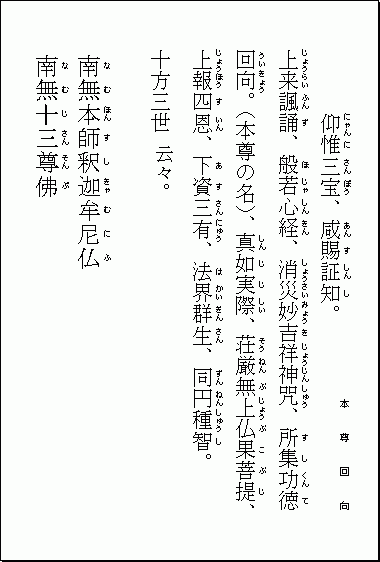 本尊回向
仰惟三宝、咸賜証知。
上来諷誦、般若心経、消災妙吉祥神咒、所集功徳
回向。(本尊の名)、真如実際、荘厳無上仏果菩提、
上報四恩、下資三有、法界群生、同円種智。
十方三世 云々。
南無本師釈迦牟尼仏
南無十三尊佛